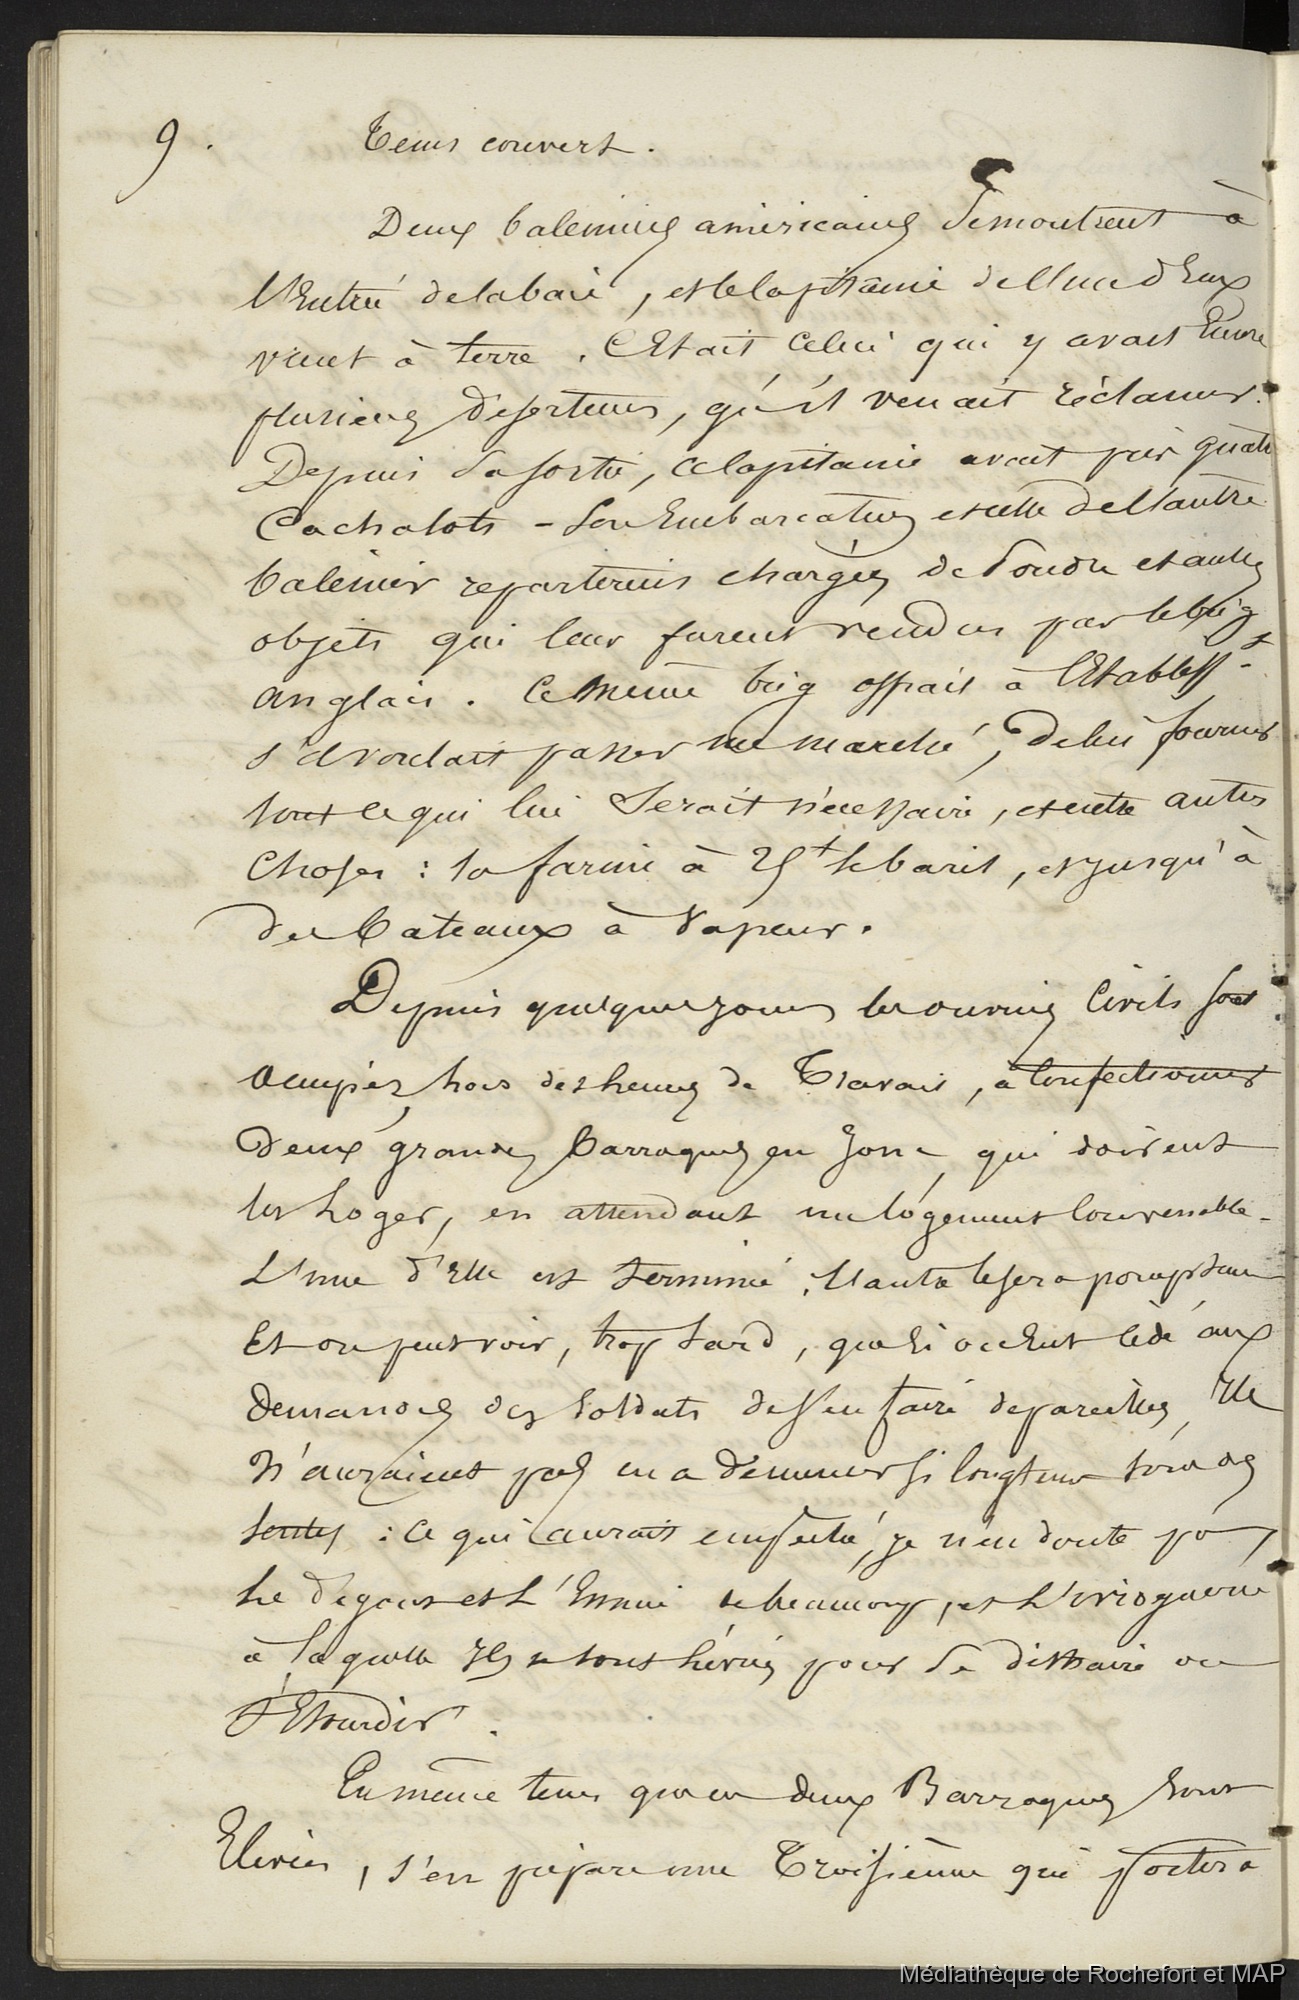 9. Tems couvert.
Deux baleiniers américains se montrent à
l'Entrée de la baie, et le Capitaine de l'une d'Eux
vient à terre. C'Etait celui qui y avait laissé
plusieurs déserteurs, qu'il venait réclamer.
Depuis sa sortie, ce Capitaine avait pris quatre
Cachalots - Son Embarcation et celle de l'autre
baleinier repartirent chargées de Poudre et autres
objets qui leur furent rendus par le brig
anglais. Ce même brig offrait à l'Etablisst
s'il voulait passer un marché, de lui fournir
tout ce qui lui Serait nécessaire, et entre autres
Choses : la farine à 25 le baril, et jusqu'à
des bateaux à Vapeur.
Depuis quelques jours les ouvriers Civils sont
occupés, hors des heures de Travail, à Confectionner
deux grandes Barraques en Jonc, qui doivent
les Loger, en attendant un logement Convenable.
L'une d'Elle est terminée ; l'autre le sera promptement
Et on peut voir, trop tard, que Si on Eut cédé aux
demandes des Soldats de s'en faire de pareilles, Ils
n'auraient pas eu a demeurer si longtems sous des
tentes : ce qui aurait empêché, je n'en doute pas,
Le dégout et L'Ennui de beaucoup, et L'ivrognerie
à laquelle Ils se sont livrés pour Se distraire ou
S'Etourdir.
En même tems que ces deux Barraques sont
Elevées, s'en prépare une Troisième qui portera
Médiathèque de Rochefort et MAP